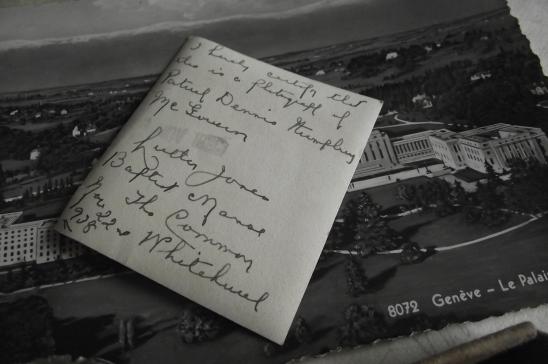 I hereby certify that
this is a photograph of
Patrick Dennis Humphrey
Mc Govern
Luther Jones
Baptist Manse
The Common
22nd Whitchurch
8072 Genève - Le Palais